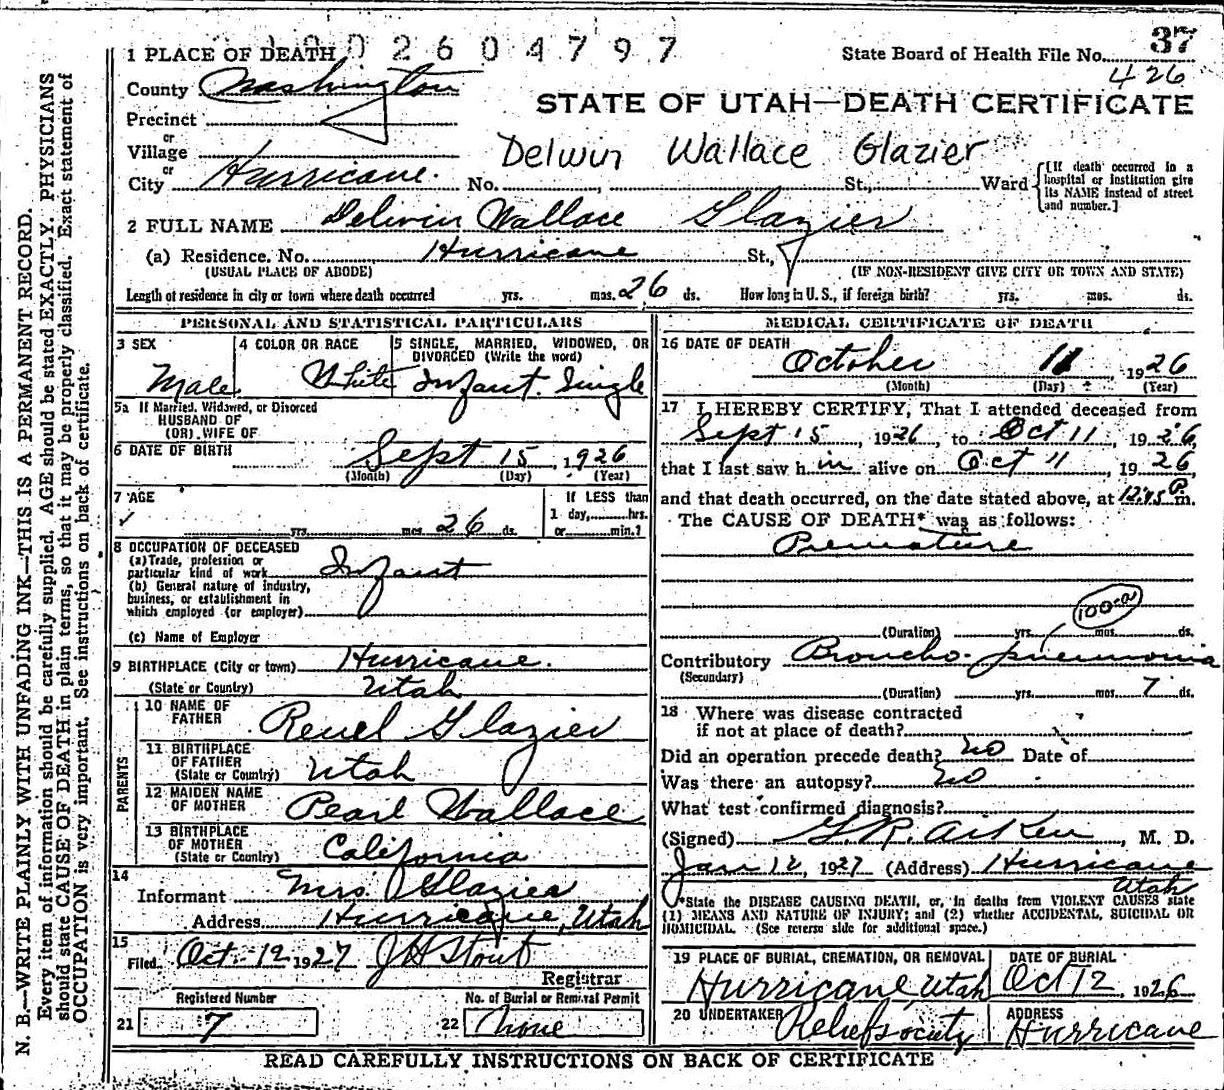 1 PLACE OF DEATH 1 9 0 2 6 0 4 7 9 7
State Board of Health File No. 37
426
County Washington
STATE OF UTAH—DEATH CERTIFICATE
Precinct
or
Village
or
City Hurricane. No. , St., Ward
Delwin Wallace Glazier
[If death occurred in a hospital or institution give its NAME instead of street and number.]
2 FULL NAME Delwin Wallace Glazier
(a) Residence. No. Hurricane St.,
(USUAL PLACE OF ABODE) (IF NON-RESIDENT GIVE CITY OR TOWN AND STATE)
Length of residence in city or town where death occurred yrs. mos. 26 ds. How long in U. S., if foreign birth? yrs. mos. ds.
PERSONAL AND STATISTICAL PARTICULARS
3 SEX
Male
4 COLOR OR RACE
White
5 SINGLE, MARRIED, WIDOWED, OR
DIVORCED (Write the word)
Infant. Single
5a If Married, Widowed, or Divorced
HUSBAND OF
(OR) WIFE OF
6 DATE OF BIRTH Sept 15, 1926
(Month) (Day) (Year)
7 AGE
yrs. mos. 26 ds.
If LESS than
1 day, hrs.
or min.?
8 OCCUPATION OF DECEASED
(a) Trade, profession or
particular kind of work Infant
(b) General nature of industry,
business, or establishment in
which employed (or employer)
(c) Name of Employer
9 BIRTHPLACE (City or town) Hurricane.
(State or Country) Utah
PARENTS
10 NAME OF
FATHER Reuel Glazier
11 BIRTHPLACE
OF FATHER
(State or Country) Utah
12 MAIDEN NAME
OF MOTHER Pearl Wallace
13 BIRTHPLACE
OF MOTHER
(State or Country) California
14
Informant Mrs. Glazier
Address Hurricane, Utah
15
Filed Oct-12 1927 J H Stout
Registrar
Registered Number
21 7
No. of Burial or Removal Permit
22 None
MEDICAL CERTIFICATE OF DEATH
16 DATE OF DEATH
October 11, 1926
(Month) (Day) (Year)
17 I HEREBY CERTIFY, That I attended deceased from
Sept 15, 1926, to Oct 11, 1926,
that I last saw him alive on Oct 11, 1926,
and that death occurred, on the date stated above, at 12:45 P. m.
The CAUSE OF DEATH* was as follows:
Premature
100-a
(Duration) yrs. mos. ds.
Contributory Broncho-pneumonia
(Secondary)
(Duration) yrs. mos. 7 ds.
18 Where was disease contracted
if not at place of death?
Did an operation precede death? no Date of
Was there an autopsy? no
What test confirmed diagnosis?
(Signed) G. R. Aiken, M. D.
Jan 12, 1927 (Address) Hurricane
Utah
*State the DISEASE CAUSING DEATH, or, in deaths from VIOLENT CAUSES state
(1) MEANS AND NATURE OF INJURY; and (2) whether ACCIDENTAL, SUICIDAL OR
HOMICIDAL. (See reverse side for additional space.)
19 PLACE OF BURIAL, CREMATION, OR REMOVAL
Hurricane, Utah
DATE OF BURIAL
Oct 12, 1926
20 UNDERTAKER Relief society
ADDRESS
Hurricane
READ CAREFULLY INSTRUCTIONS ON BACK OF CERTIFICATE
N. B.—WRITE PLAINLY WITH UNFADING INK—THIS IS A PERMANENT RECORD.
Every item of information should be carefully supplied. AGE should be stated EXACTLY. PHYSICIANS
should state CAUSE OF DEATH in plain terms, so that it may be properly classified. Exact statement of
OCCUPATION is very important. See instructions on back of certificate.